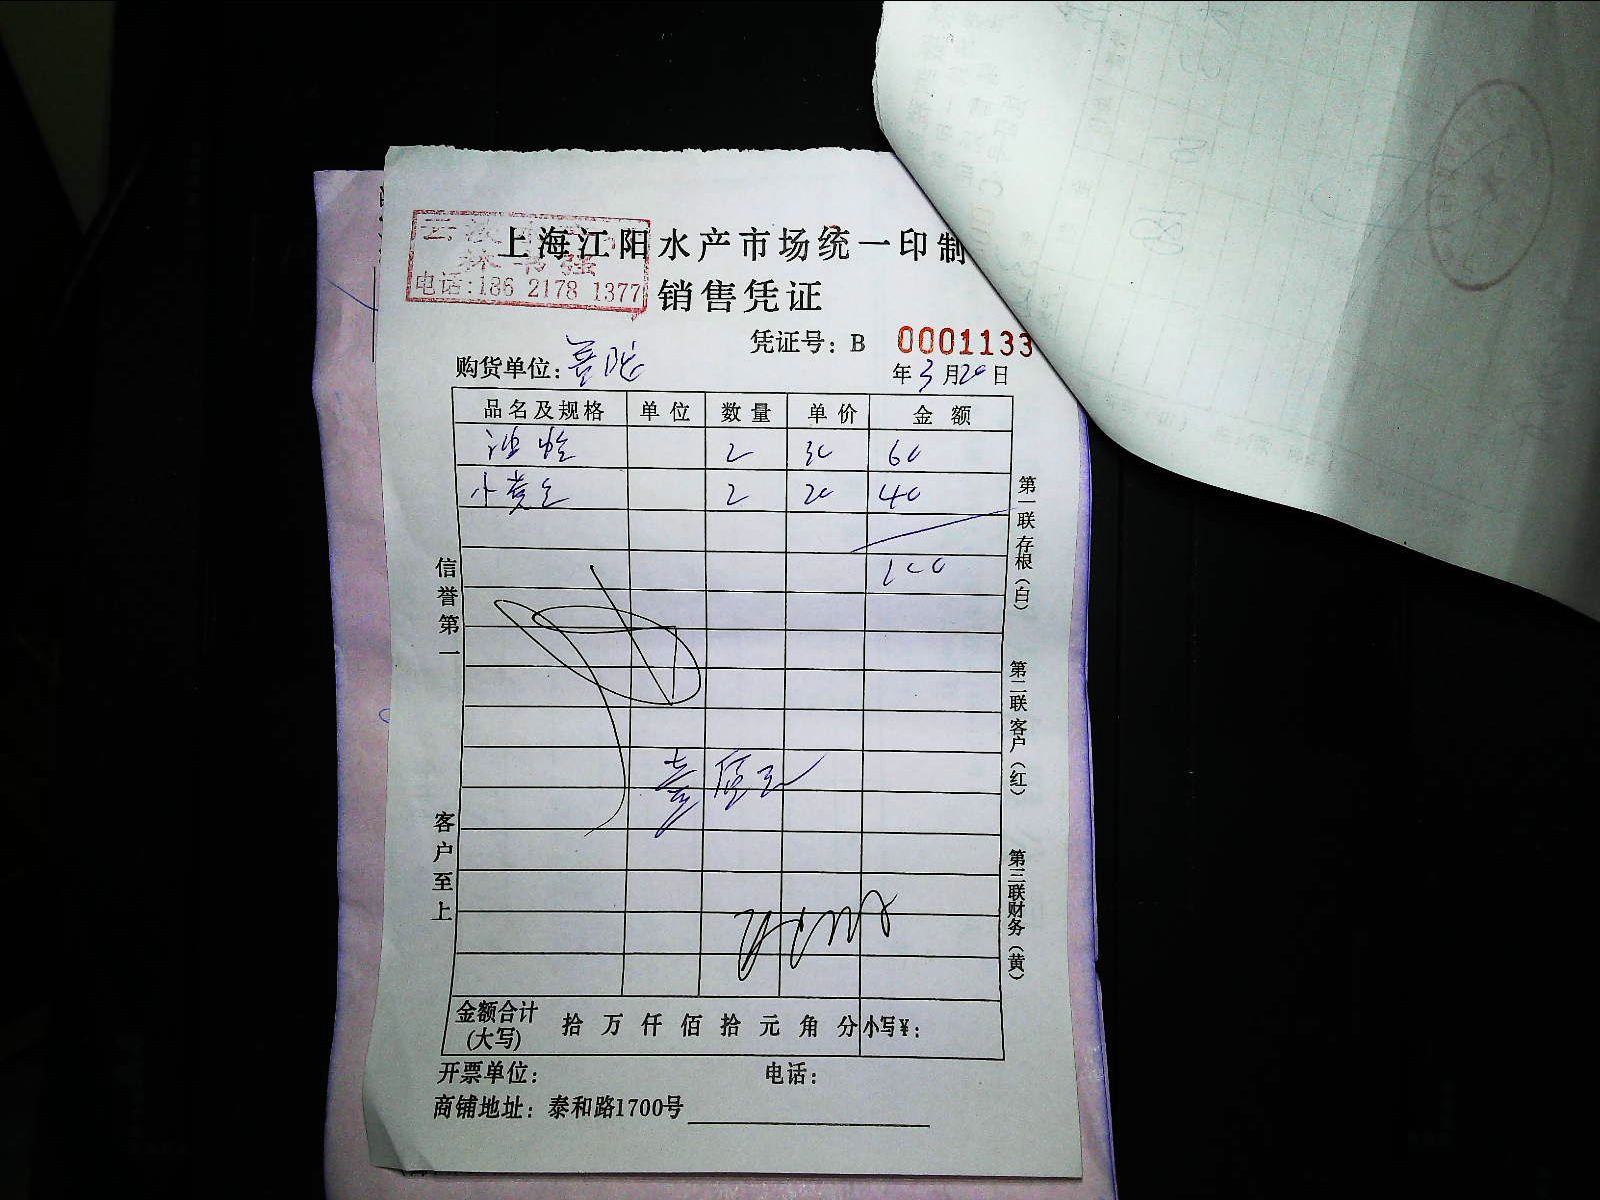 上海江阳水产市场统一印制
电话:186 2178 1377
销售凭证
凭证号: B 0001133
购货单位: 普陀
年3月20日
品名及规格 单位 数量 单价 金额
2 30 60
小黄鱼 2 20 40
100
信誉第一
客户至上
第一联存根(白)
第二联客户(红)
第三联财务(黄)
金额合计(大写) 拾 万 仟 佰 拾 元 角 分 小写¥:
开票单位: 电话:
商铺地址: 泰和路1700号